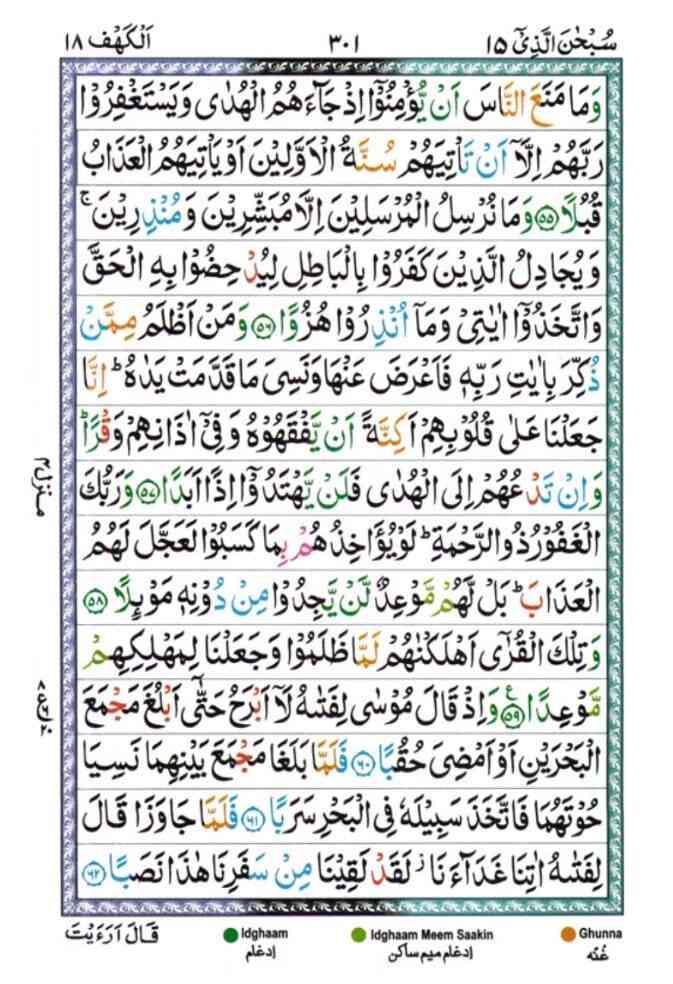 سُبْحٰنَ الَّذِیْۤ ۱۵
۳۰۱
اَلْكَهْف ۱۸
وَمَا مَنَعَ النَّاسَ اَنْ یُّؤْمِنُوْۤا اِذْ جَآءَهُمُ الْهُدٰی وَیَسْتَغْفِرُوْا
رَبَّهُمْ اِلَّاۤ اَنْ تَاْتِیَهُمْ سُنَّةُ الْاَوَّلِیْنَ اَوْ یَاْتِیَهُمُ الْعَذَابُ
قُبُلًا ۝۵۵ وَمَا نُرْسِلُ الْمُرْسَلِیْنَ اِلَّا مُبَشِّرِیْنَ وَمُنْذِرِیْنَ ۚ
وَیُجَادِلُ الَّذِیْنَ كَفَرُوْا بِالْبَاطِلِ لِیُدْحِضُوْا بِهِ الْحَقَّ
وَاتَّخَذُوْۤا اٰیٰتِیْ وَمَاۤ اُنْذِرُوْا هُزُوًا ۝۵۶ وَمَنْ اَظْلَمُ مِمَّنْ
ذُكِّرَ بِاٰیٰتِ رَبِّهٖ فَاَعْرَضَ عَنْهَا وَنَسِیَ مَا قَدَّمَتْ یَدٰهُ ؕ اِنَّا
جَعَلْنَا عَلٰی قُلُوْبِهِمْ اَكِنَّةً اَنْ یَّفْقَهُوْهُ وَفِیْۤ اٰذَانِهِمْ وَقْرًا ؕ
وَاِنْ تَدْعُهُمْ اِلَی الْهُدٰی فَلَنْ یَّهْتَدُوْۤا اِذًا اَبَدًا ۝۵۷ وَرَبُّكَ
الْغَفُوْرُ ذُو الرَّحْمَةِ ؕ لَوْ یُؤَاخِذُهُمْ بِمَا كَسَبُوْا لَعَجَّلَ لَهُمُ
الْعَذَابَ ؕ بَلْ لَّهُمْ مَّوْعِدٌ لَّنْ یَّجِدُوْا مِنْ دُوْنِهٖ مَوْىِٕلًا ۝۵۸
وَتِلْكَ الْقُرٰۤی اَهْلَكْنٰهُمْ لَمَّا ظَلَمُوْا وَجَعَلْنَا لِمَهْلِكِهِمْ
مَّوْعِدًا ۝۵۹ ع وَاِذْ قَالَ مُوْسٰی لِفَتٰىهُ لَاۤ اَبْرَحُ حَتّٰۤی اَبْلُغَ مَجْمَعَ
الْبَحْرَیْنِ اَوْ اَمْضِیَ حُقُبًا ۝۶۰ فَلَمَّا بَلَغَا مَجْمَعَ بَیْنِهِمَا نَسِیَا
حُوْتَهُمَا فَاتَّخَذَ سَبِیْلَهٗ فِی الْبَحْرِ سَرَبًا ۝۶۱ فَلَمَّا جَاوَزَا قَالَ
لِفَتٰىهُ اٰتِنَا غَدَآءَنَا ؗ لَقَدْ لَقِیْنَا مِنْ سَفَرِنَا هٰذَا نَصَبًا ۝۶۲
منزل۴
قَالَ اَرَءَیْتَ
Idghaam
ادغام
Idghaam Meem Saakin
ادغام میم ساکن
Ghunna
غُنّه